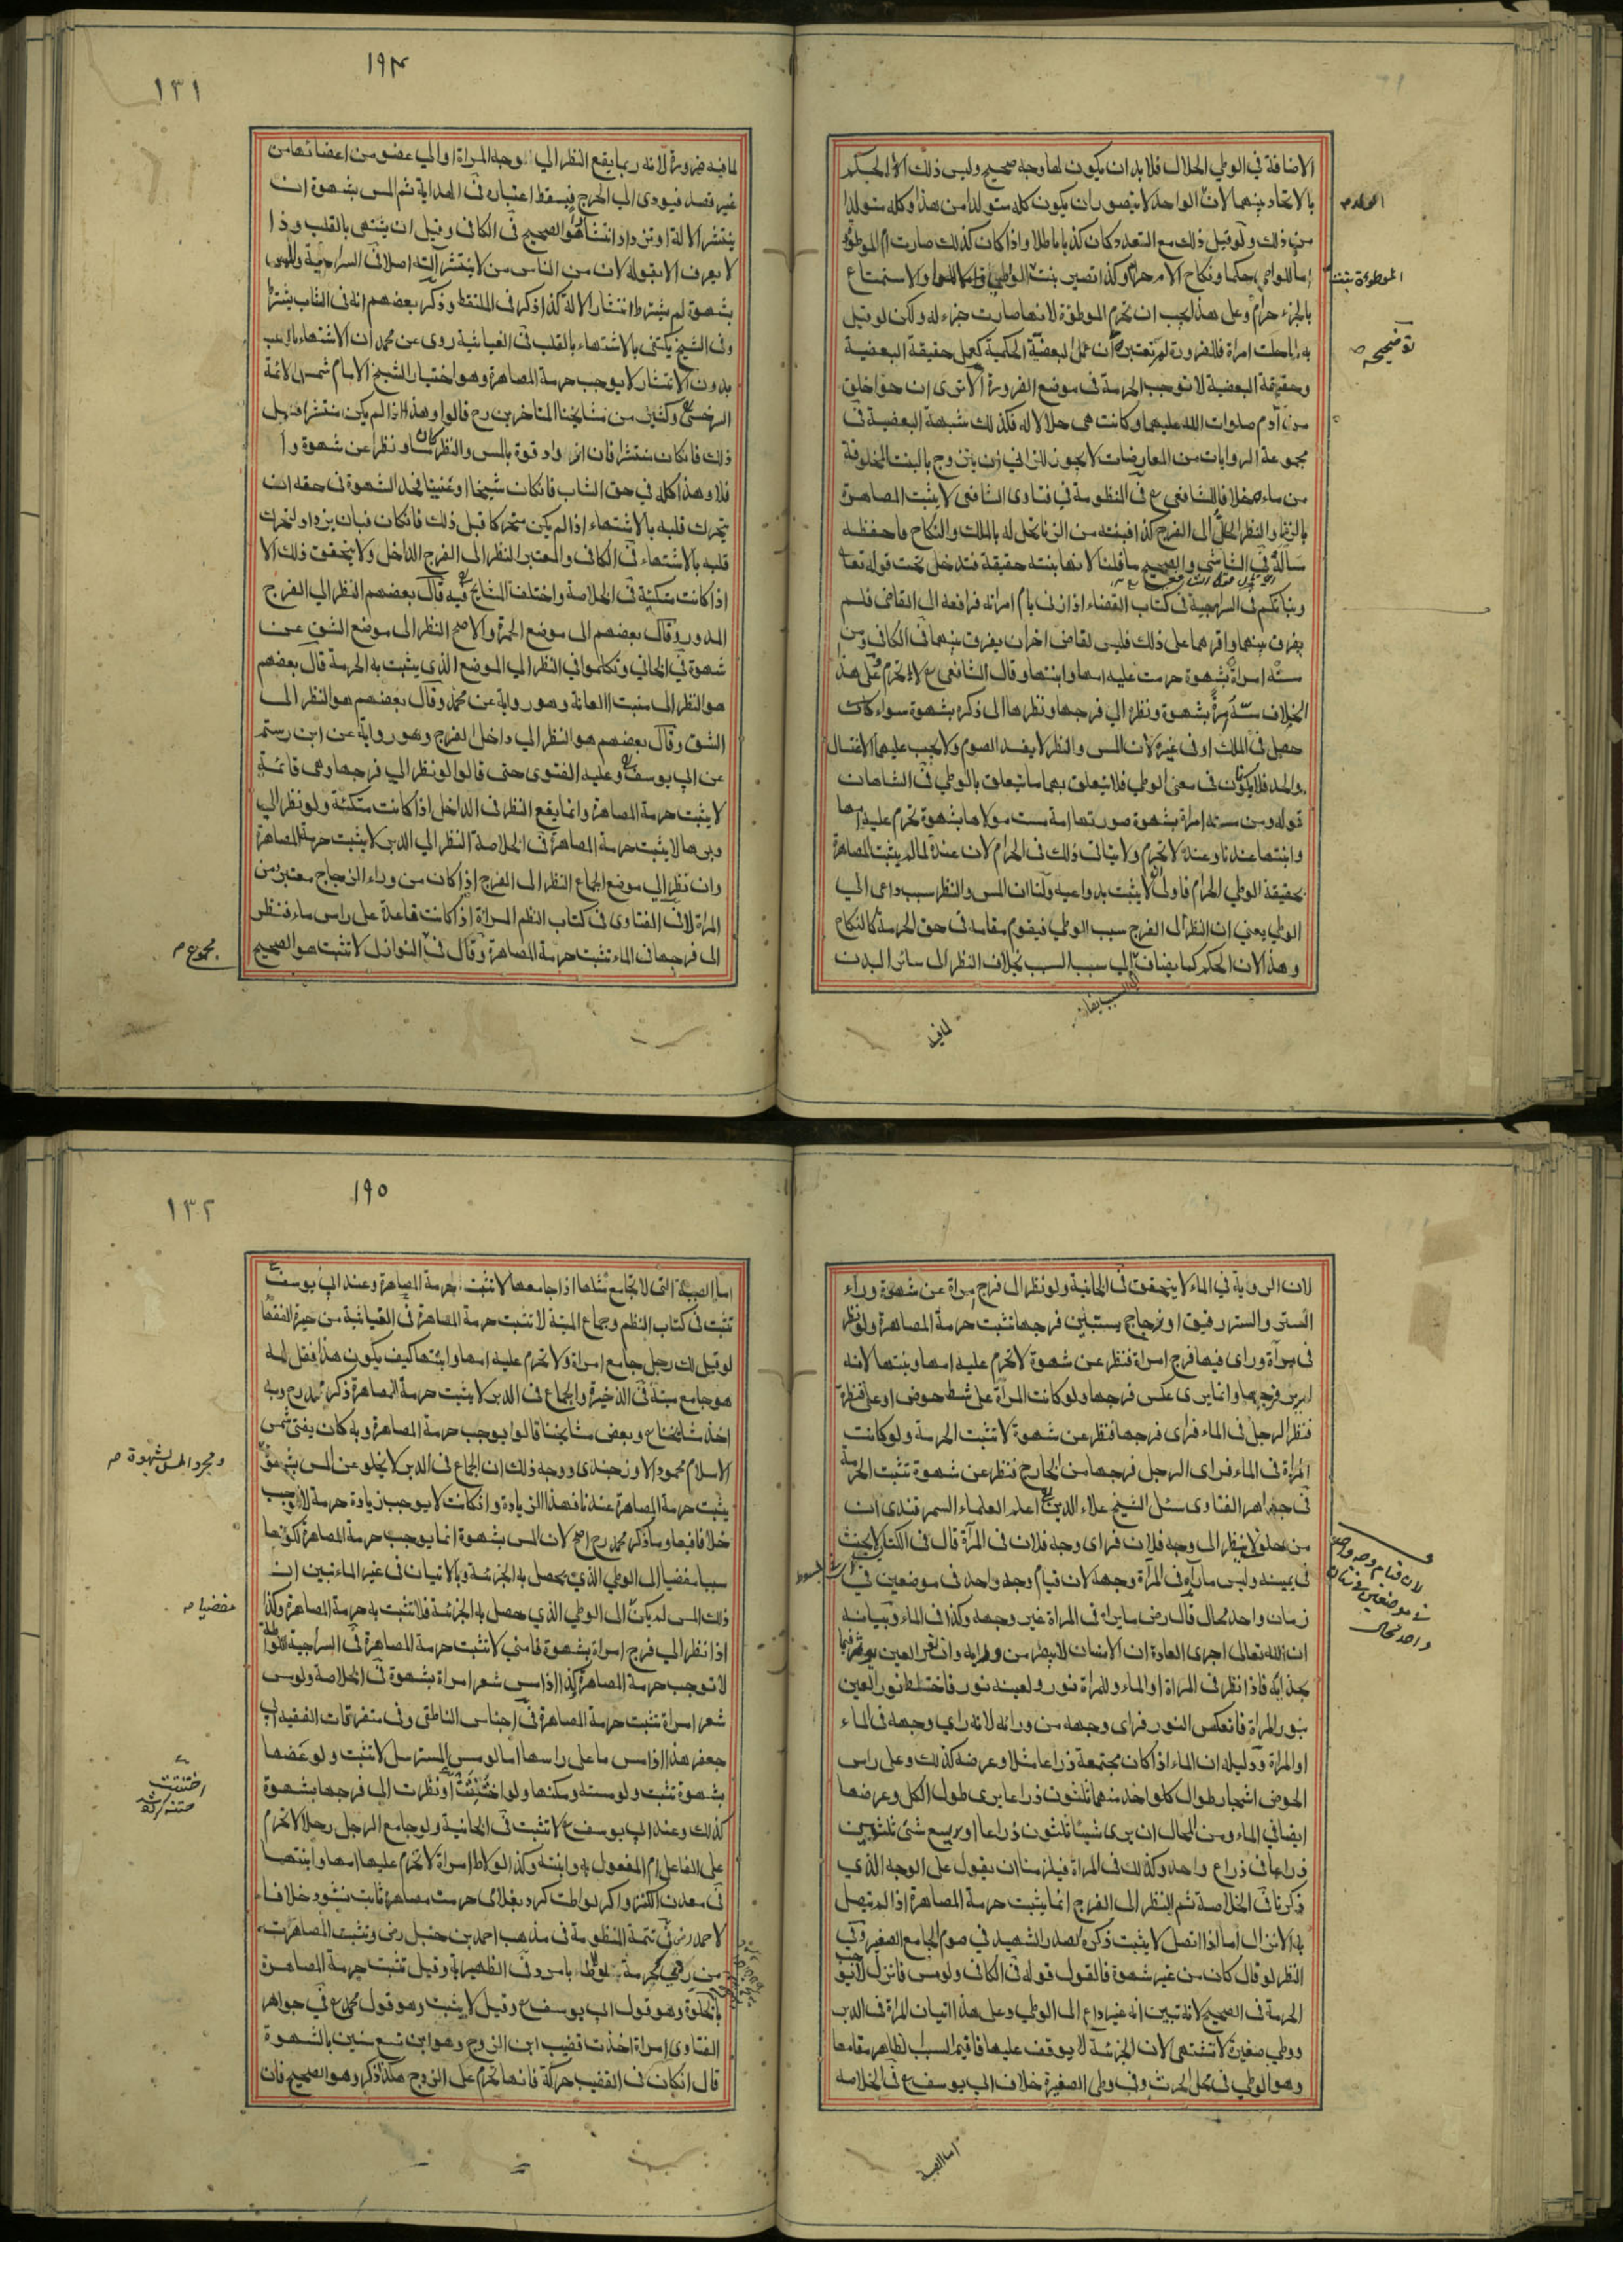 الاضافة في الوطي الحلال فلا بد ان يكون لها وجه صحيح وليس ذلك الا الحكم
بالاتحاد بينهما لان الواحد لا يتصور ان يكون كله متولدا من هذا وكله متولدا
من ذلك ولو قيل ذلك مع التعدد كان كذبا باطلا واذا كان كذلك صارت ام الموطؤة
اما للواطي حكما ونكاح الام حرام وكذا تصير بنت والاستمتاع
بالجزء حرام وعلى هذا يجب ان تحرم الموطؤة لانها صارت جزء له ولكن لو قيل
به لما حلت امراة فللضرورة لم تعتبره ان عمل البعضية الحكمية كعمل حقيقة البعضية
وحقيقة البعضية لا توجب الحرمة في موضع الضرورة الا ترى ان حوا خلق
من آدم صلوات الله عليهما وكانت هي حلالا له فكذلك شبهة البعضية في
مجموعة الروايات من المعارضات لا يجوز للزاني ان يتزوج بالبنت المخلوقة
من ماءه خلافا للشافعي ع في المنظومة في فتاوى الشافعي لا يثبت المصاهرة
بالزنا والنظر الحل الى الفرج كذا فبنته من الزنا تحل له بالملك والنكاح فاحفظه
مسألة في الشاشي والصحيح ما قلنا لانها بنته حقيقة فتدخل تحت قوله تعا
وبناتكم في السراجية في كتاب القضاء اذا زنى بام امراته فرافعه الى القاضي فلم
يفرق بينهما واقرهما على ذلك فليس لقاض اخر ان يفرق بينهما في الكافي ومن
مسته امراة بشهوة حرمت عليه امها وابنتها وقال الشافعي ع لا تحرم وعلى هذا
الخلاف مسه امرأة بشهوة ونظره الي فرجها ونظرها الى ذكره بشهوة سواء كان
حصل في الملك او في غيره لان المس والنظر لا يفسد الصوم ولا يجب عليهما الاغتسال
والحد فلا يكونان في معنى الوطي فلا يتعلق بهما ما يتعلق بالوطي في الشاهان
قوله ومن مسته امراة بشهوة صورتها امة مست مولاها بشهوة تحرم عليه امها
وابنتها عندنا وعنده لا تحرم ولا يتاتى ذلك في الحرام لان عنده لما لم يثبت المصاهرة
بحقيقة الوطي الحرام فاولى ان لا يثبت بدواعيه ولنا ان المس والنظر سبب داعى الي
الوطي يعني ان النظر الى الفرج سبب الوطي فيقوم مقامه في حق الحرمة كالنكاح
وهذا لان الحكم كما يضاف الي سبب السبب بخلاف النظر الى سائر البدن
الموطوءة بنتا
توضيحه
لما فيه
١٩٤
١٣١
لما فيه ضرورة لانه ربما يقع النظر الي وجه المراة او الي عضو من اعضائها من
غير قصد فيودى الى الحرج فيسقط اعتباره في الهداية ثم المس بشهوة ان
ينتشر الالة او تزداد انتشارا هو الصحيح في الكافي وقيل ان يشتهي بالقلب وذا
لا يعرف الا بقوله لان من الناس من لا ينتشر آلته اصلا في السراجية والمس
بشهوة لم يشترط انتشار الالة كذا ذكر في الملتقط وذكر بعضهم انه في الشاب يشترط
وفي الشيخ يكتفى بالاشتهاء بالقلب في الغياثية روى عن محمد ان الاشتهاء بالقلب
بدون الانتشار لا يوجب حرمة المصاهرة وهو اختيار الشيخ الامام شمس الائمة
السرخسي وكثير من مشايخنا المتاخرين رح قالوا وهذا اذا لم يكن منتشرا قبل
ذلك فان كان منتشرا فان ازداد قوة بالمس والنظر كان مسا ونظرا عن شهوة والا
فلا وهذا كله في حق الشاب فان كان شيخا او عنينا فحد الشهوة في حقه ان
يتحرك قلبه بالاشتهاء اذا لم يكن متحركا قبل ذلك فان كان فبان يزداد تحرك
قلبه بالاشتهاء في الكافي والمعتبر النظر الى الفرج الداخل ولا يتحقق ذلك الا
اذا كانت متكئة في الخلاصة واختلف المشايخ فيه قال بعضهم النظر الي الفرج
المدور وقال بعضهم الى موضع الحمرة والاصح النظر الى موضع الشق عن
شهوة في الخاني وتكلموا في النظر الي الموضع الذي يثبت به الحرمة قال بعضهم
هو النظر الى منبت العانة وهو رواية عن محمد وقال بعضهم هو النظر الى
الشق وقال بعضهم هو النظر الي داخل الفرج وهو رواية عن ابن رستم
عن ابي يوسف وعليه الفتوى حتى قالوا لو نظر الي فرجها وهي قائمة
لا يثبت حرمة المصاهرة وانما يقع النظر في الداخل اذا كانت متكئة ولو نظر الي
دبرها لا يثبت حرمة المصاهرة في الخلاصة النظر الي الدبر لا يثبت حرمة المصاهرة
وان نظر الي موضع الجماع النظر الى الفرج اذا كان من وراء الزجاج معتبر من
المراة لا في الفتاوى في كتاب النظم المراة اذا كانت قاعدة على راس ماء فنظر
الى فرجها في الماء تثبت حرمة المصاهرة وقال في النوازل لا تثبت هو الصحيح
مجموع
لان الروية في الماء لا يتحقق في الخانية ولو نظر الى فرج مراة عن شهوة وراء
الستر والستر رقيق او زجاج يستبين فرجها تثبت حرمة المصاهرة ولو نظر
في مرآة وراى فيها فرج امراة فنظر عن شهوة لا تحرم عليه امها وبنتها لانه
لم ير فرجها وانما يرى عكس فرجها ولو كانت المراة على شط حوض او على قنطرة
فنظر الرجل في الماء فراى فرجها فنظر عن شهوة لا تثبت الحرمة ولو كانت
المراة في الماء فراى الرجل فرجها من الخارج فنظر عن شهوة تثبت الحرمة
في جواهر الفتاوى سئل الشيخ علاء الدين اعلم العلماء السمرقندى ان
من حلف لا ينظر الى وجه فلان فراى وجه فلان في المرآة قال في الكتاب لا يحنث
في يمينه وليس ما رآه في المرآة وجهه لان قيام وجه واحد في موضعين في
زمان واحد محال قال رض ما يراه في المراة غير وجهه وكذا في الماء وبيانه
ان الله تعالى اجرى العادة ان الانسان لا يبصر من ورايه وان نور العين يؤثر فيما
بحذائه فاذا نظر في المراة او الماء وللمراة نور ولعينه نور فاختلط نور العين
بنور المراة فانعكس النور فراى وجهه من ورائه لانه راي وجهه في الماء
او المراة ودليله ان الماء اذا كان مجتمعة ذراعا مثلا وعرضه كذلك وعلى راس
الحوض اشجار طوال كل واحد منهما ثلثون ذراعا يرى طول الكل وعرضها
ايضا في الماء ومن المحال ان يرى شيئا ثلثون ذراعا او يسع شئ ثلثين
ذراعا في ذراع واحد وكذلك في المراة فيلزمنا ان يقول على الوجه الذي
ذكرنا في الخلاصة ثم النظر الى الفرج انما يثبت حرمة المصاهرة اذا لم يتصل
به الانزال اما اذا اتصل لا يثبت ذكره الصدر الشهيد في صوم الجامع الصغير وفي
النظر لو قال كان من غير شهوة فالقول قوله في الكافي ولو مس فانزل لا توجب
الحرمة في الصحيح لانه تبين انه غير داع الى الوطي وعلى هذا اتيان المراة في الدبر
ووطي صغيرة لا تشتهي لان الجزئية لا يوقف عليها فاقيم السبب الظاهر مقامها
وهو الوطي في محل الحرث وفي وطي الصغيرة خلاف ابي يوسف ع في الخلاصة
لان قيام وجه واحد
في موضعين في زمان
واحد محال
اما الصبية
١٩٥
١٣٢
اما الصبية التي لا تجامع مثلها اذا جامعها لا تثبت حرمة المصاهرة وعند ابي يوسف
تثبت في كتاب النظم وجماع الميتة لا تثبت حرمة المصاهرة في الغياثية من حيرة الفقها
لو قيل لك رجل جامع امراة ولا تحرم عليه امها وابنتها كيف يكون هذا فقل له
هو جامع ميتة في الذخيرة والجماع في الدبر لا يثبت حرمة المصاهرة ذكره محمد رح وبه
اخذ مشايخنا ع وبعض مشايخنا قالوا يوجب حرمة المصاهرة وبه كان يفتى شمس
الاسلام محمود الاوزجندى ووجه ذلك ان الجماع في الدبر لا يخلو عن المس بشهوة
يثبت حرمة المصاهرة عندنا فهذا الزيادة وان كانت لا يوجب زيادة حرمة لا توجب
خللا فيها وما ذكر محمد رح اصح لان المس بشهوة انما يوجب حرمة المصاهرة لكونها
سببا مفضيا الى الوطي الذي يحصل به الجزئية وبالاتيان في غير الماء تبين ان
ذلك المس لم يكن الى الوطي الذي حصل به الجزئية فلا تثبت به حرمة المصاهرة وكذا
اذا نظر الي فرج امراة بشهوة فامني لا تثبت حرمة المصاهرة في السراجية اللواطة
لا توجب حرمة المصاهرة كذا اذا مس شعر امراة بشهوة في الخلاصة ولو مس
شعر امراة تثبت حرمة المصاهرة في اجناس الناطفي وفي متفرقات الفقيه ابي
جعفر هذا اذا مس ما على راسها اما لو مس المسترسل لا تثبت ولو عضها
بشهوة تثبت ولو مسته ومكنها ولو اختنثت او نظرت الى فرجها بشهوة
كذلك وعند ابي يوسف ع لا تثبت في الخانية ولو جامع الرجل رجلا لا تحرم
على الفاعل ام المفعول به وابنته وكذا لو لاط امراة لا تحرم عليها امها وابنتها
في معدن الكنز واكر لواطت كرد بغلامي حرمت مصاهرة ثابت نشود خلافا
لاحمد رض في تتمة المنظومة في مذهب احمد بن حنبل رض وتثبت المصاهرة
من بامرد في الظهيرية وقيل تثبت حرمة المصاهرة
بالخلوة وهو قول ابي يوسف ع وقيل لا يثبت وهو قول محمد ع في جواهر
الفتاوى امراة اخذت قضيب ابن الزوج وهو ابن تسع سنين بالشهوة
قال ان كان في القضيب حركة فانها تحرم على الزوج هكذا ذكر وهو الصحيح فان
ومجرد المس بشهوة
مفضيا
اختنثت
ختنه كرده شد